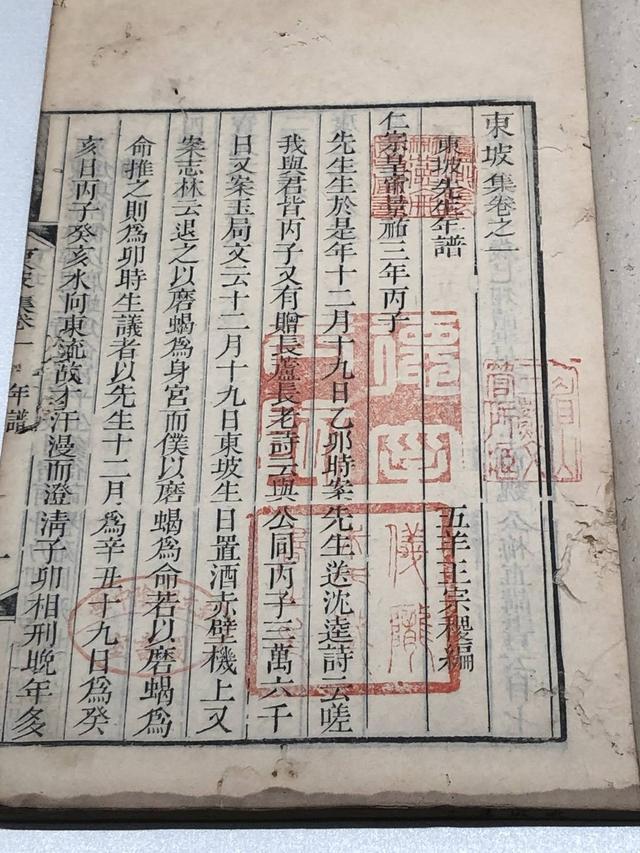 東坡集卷之一
東坡先生年譜
五羊王宗稷編
仁宗皇帝景祐三年丙子
先生生於是年十二月十九日乙卯時案先生送沈逵詩云嗟
我與君皆丙子又有贈長蘆長老詩云與公同丙子三萬六千
日又案玉局文云十二月十九日東坡生日置酒赤壁磯上又
案志林云退之以磨蝎為身宮而僕以磨蝎為命若以磨蝎為
命推之則為卯時生議者以先生十二月為辛丑十九日為癸
亥日丙子癸亥水向東流故才汗漫而澄清子卯相刑晚年多
年譜